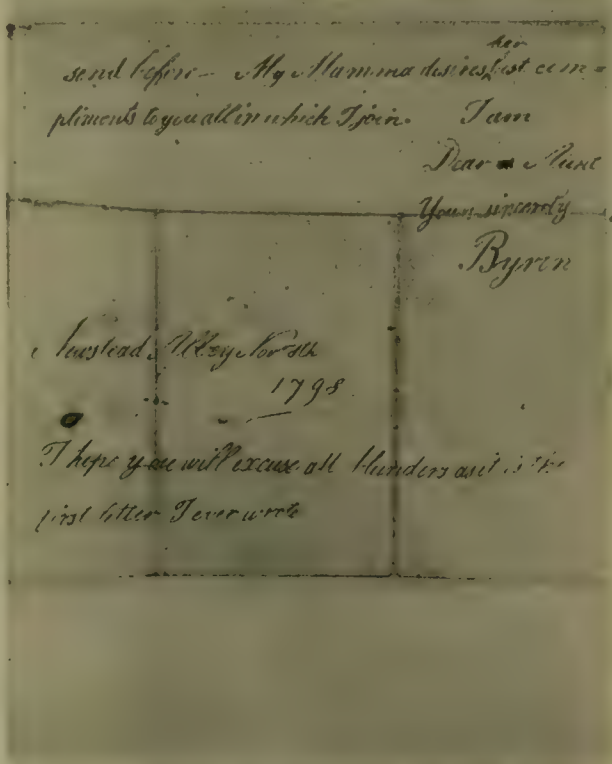 her
send before – My Mamma desires best com =
pliments to you all in which I join. I am
Dear Aunt
Yours sincerely
Byron
Newstead Abbey Novr 8th
1798
I hope you will excuse all blunders as it is the
first letter I ever wrote